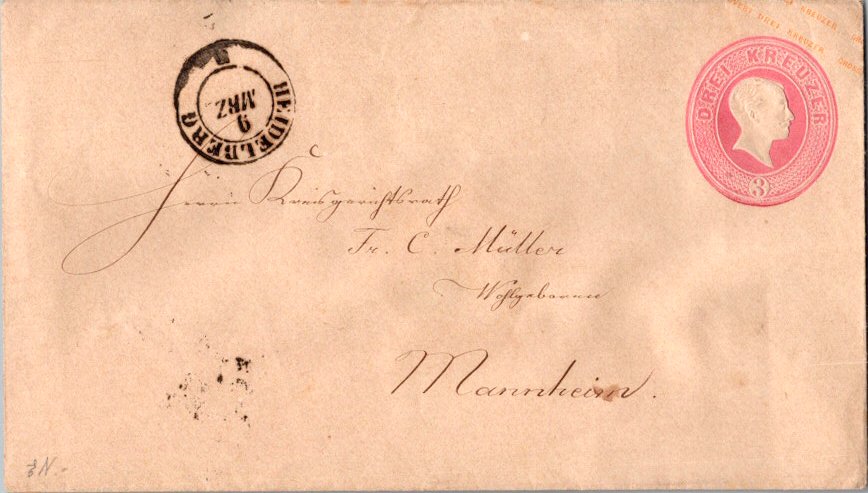 DREI KREUZER
DREI KREUZER
3
HEIDELBERG
9
MRZ
Herrn Kreisgerichtsrath
Fr. C. Müller
Wohlgeboren
Mannheim.